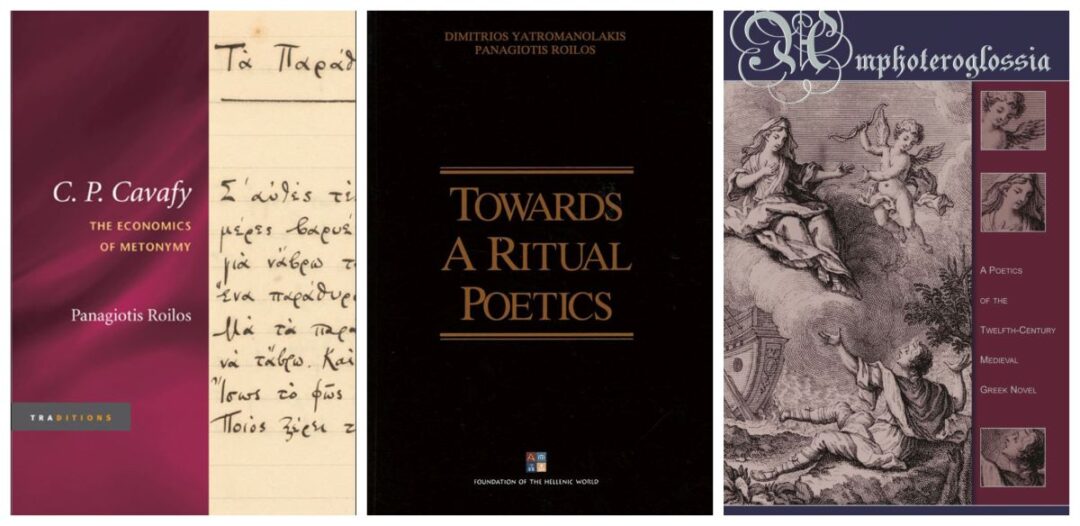 C. P. Cavafy
THE ECONOMICS
OF METONYMY
Panagiotis Roilos
TRADITIONS
Τὰ Παράθ
μέρες βαρυέ
γιὰ νἄβρω τ
Ἕνα παράθυρ
Μὰ τὰ παρα
νὰ τἄβρω. Καὶ
Ἴσως τὸ φῶς
Ποῖος ξέρει τ
DIMITRIOS YATROMANOLAKIS
PANAGIOTIS ROILOS
TOWARDS
A RITUAL
POETICS
FOUNDATION OF THE HELLENIC WORLD
Amphoteroglossia
A POETICS
OF THE
TWELFTH-CENTURY
MEDIEVAL
GREEK NOVEL